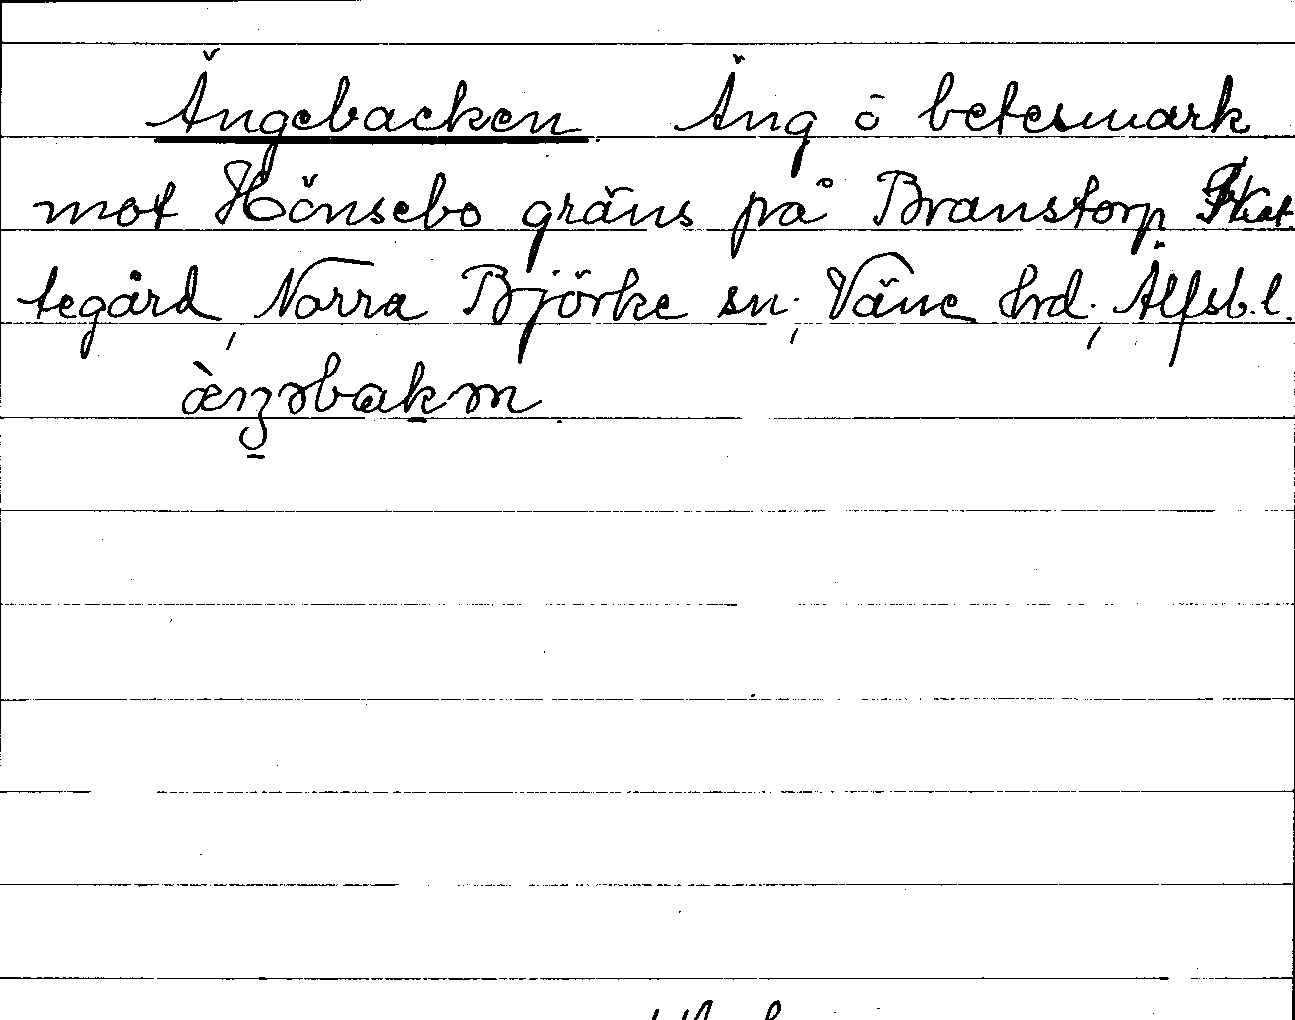 Ängebacken Äng ö betesmark
mot Hönsebo gräns på Branstorp Skat-
tegård, Norra Björke sn; Väne hrd; Älfsb. l.